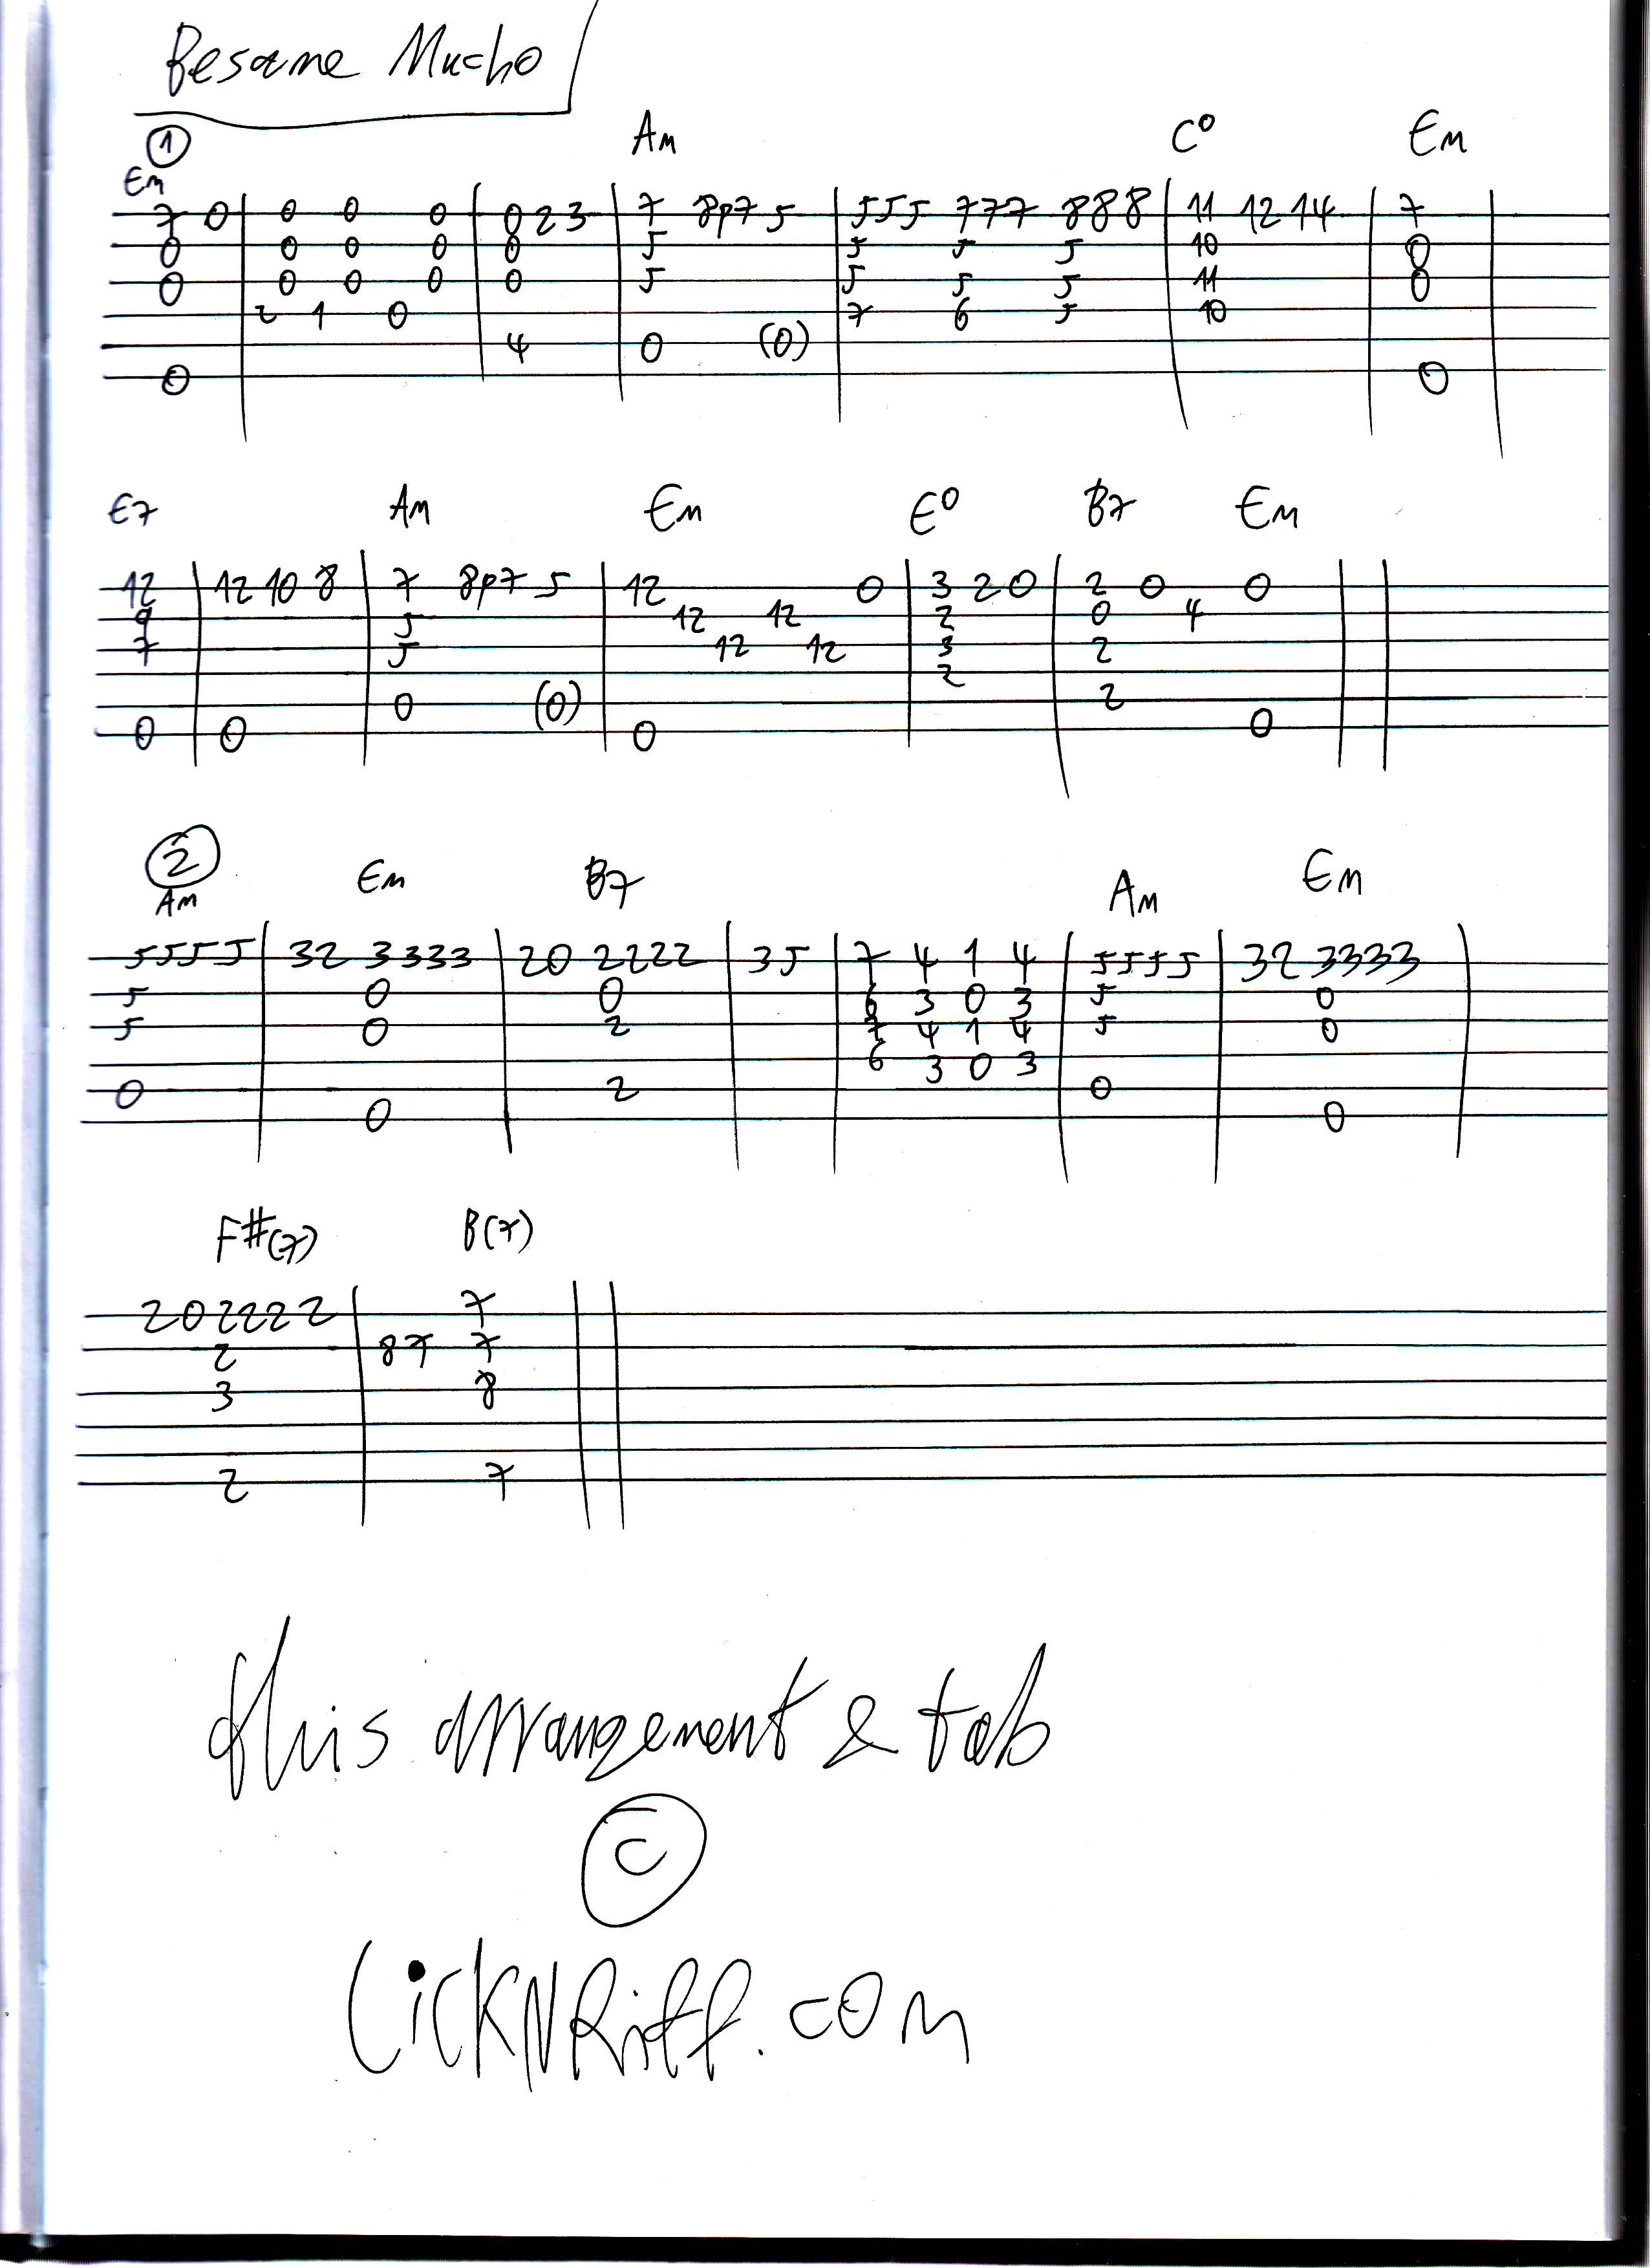 Besame Mucho
①
Em Am C° Em
7 0 | 0 0 0 | 0 2 3 | 7 8p7 5 | 5 5 5 7 7 7 8 8 8 | 11 12 14 | 7
0 | 0 0 0 | 0 | 5 | 5 5 5 | 10 | 0
0 | 0 0 0 | 0 | 5 | 5 5 5 | 11 | 0
2 1 0 | 7 6 5 | 10
4 | 0 (0)
0 0
E7 Am Em E° B7 Em
12 | 12 10 8 | 7 8p7 5 | 12 0 | 3 2 0 | 2 0 0
9 | 5 | 12 12 | 2 | 0 4
7 | 5 | 12 12 | 3 | 2
2
0 (0) 2
0 | 0 | 0 0
②
Am Em B7 Am Em
5 5 5 5 | 3 2 3 3 3 3 | 2 0 2 2 2 2 | 3 5 | 7 4 1 4 | 5 5 5 5 | 3 2 3 3 3 3
5 | 0 | 0 | 6 3 0 3 | 5 | 0
5 | 0 | 2 | 7 4 1 4 | 5 | 0
6 3 0 3
0 2 0
0 0
F#(7) B(7)
2 0 2 2 2 2 | 7
2 | 8 7 7
3 | 8
2 | 7
this arrangement & tab
©
LickNRiff.com